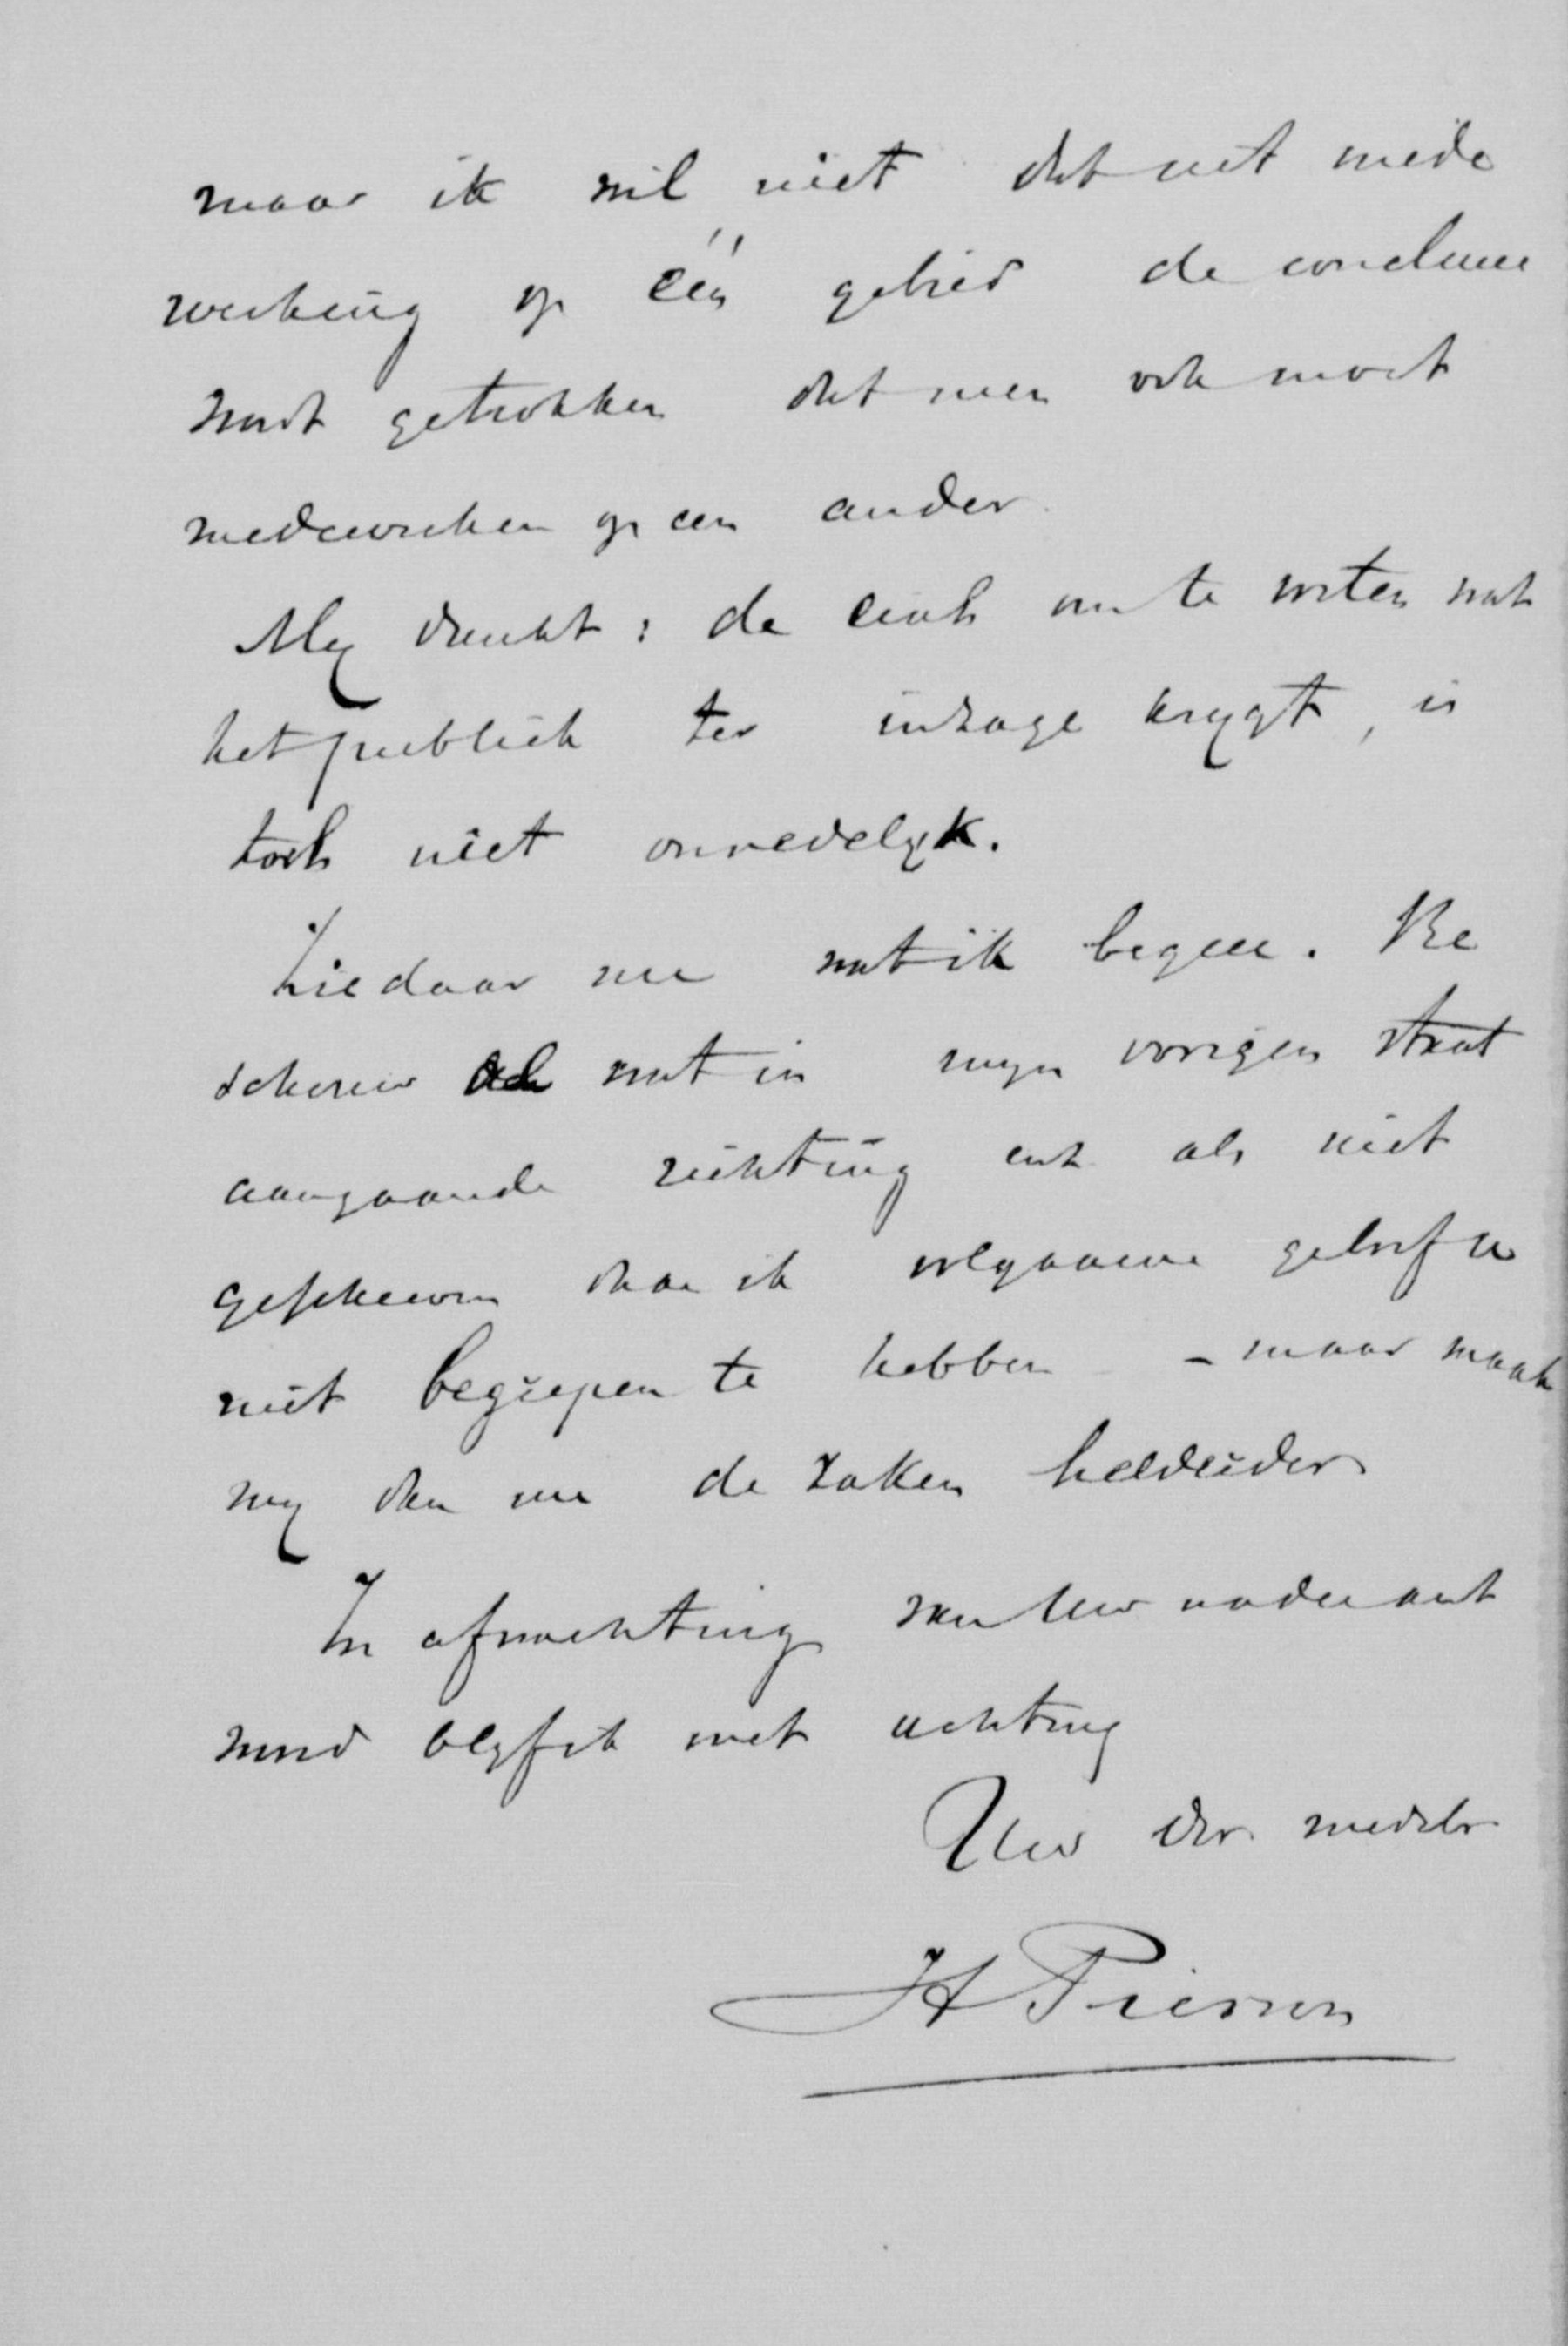 maar ik wil niet dat uit mede
werking op één gebied de conclusie
wordt getrokken dat men ook moet
medewerken op een ander.
My dunkt: de eisch om te weten wat
het publiek ter inzage krygt, is
toch niet onredelyk.
Ziedaar nu wat ik begeer. Be
schouw ook wat in myn vorigen staat
aangaande richting enz. als niet
geschreven daar ik volgaarne geloof u
niet begrepen te hebben - maar maak
my dan nu de zaken helderder
In afwachting van Uw nader ant
woord blyf ik met achting
Uw dw.
H Pierson